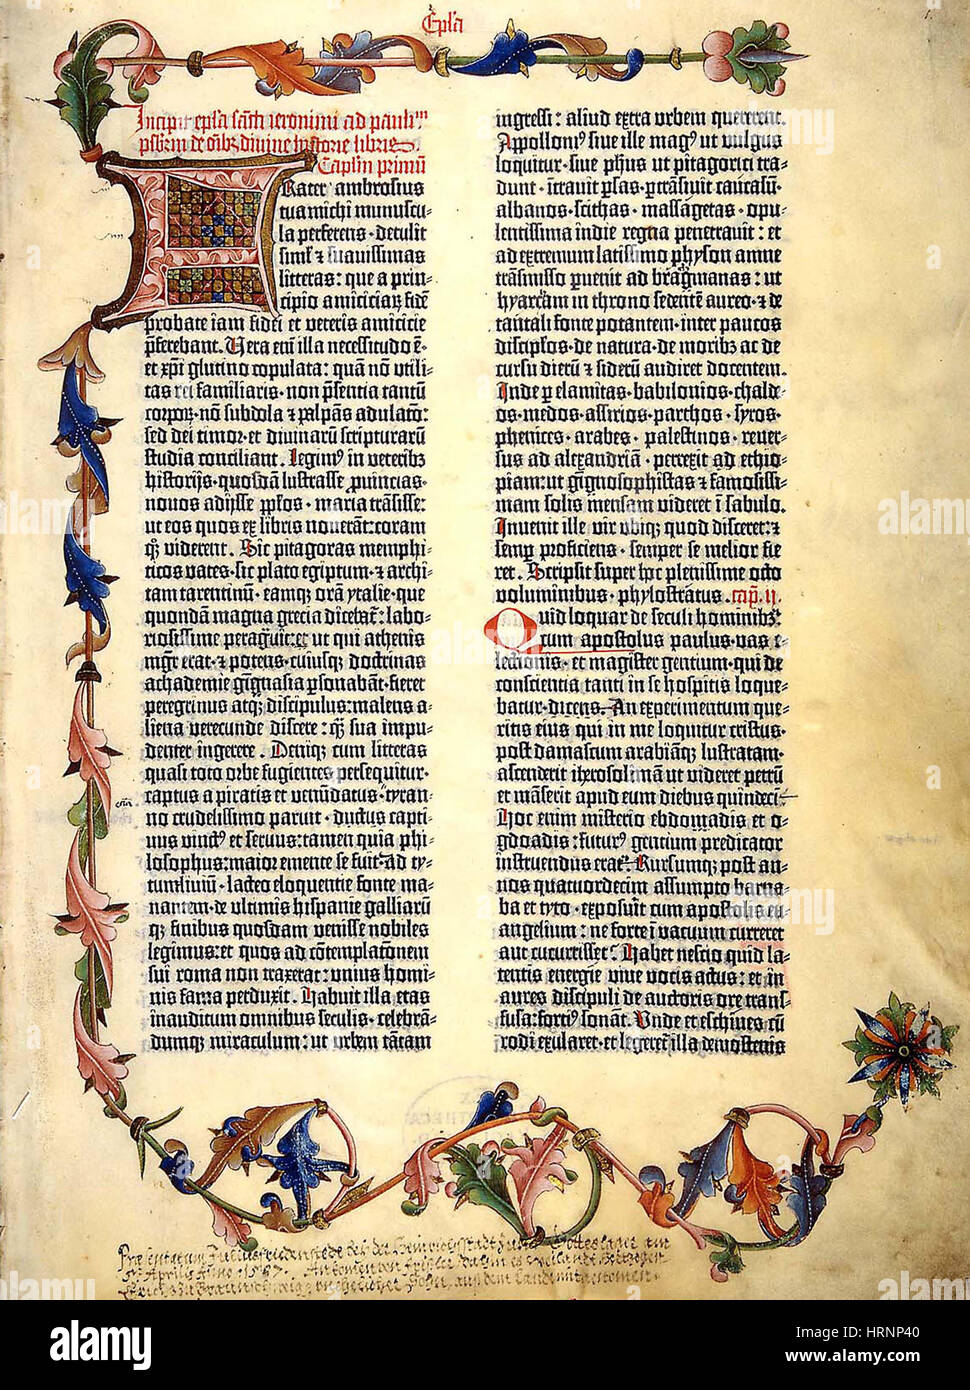 Epl̄a
Incipit epl̄a sancti ieronimi ad paulinum
presbiterum de oībꝫ divine historie libris.
Capl'm primū
Frater ambrosius
tua michi munuscu-
la perferens · detulit
simˡ et suavissimas
litteras: que a prin-
cipio amiciciaꝝ fidē
probate iam fidei et veteris amicicie
pferebant. Vera enī illa necessitudo ē·
et xp̄i glutino copulata: quā nō utili-
tas rei familiaris · non pn̄tia tantū
corpoꝝ · nō subdola ⁊ palpās adulatō:
sed dei timor · et divinarū scripturarū
studia conciliant. Legimꝰ in veteribꝫ
historijs · quosdā lustrasse ꝓvincias·
novos adijsse pp̄los · maria trāsisse:
ut eos quos ex libris noverāt: coram
qꝫ viderent. Sic pitagoras memphi-
ticos vates · sic plato egiptum · ⁊ archi-
tam tarentinū · eamqꝫ orā ytalie · que
quondā magna grecia dicebat̄: labo-
riosissime peragvit: et ut qui athenis
mgr̄ erat · ⁊ potens · cuiusqꝫ doctrinas
achademie gignasia ꝑsonabāt · fieret
peregrinus atqꝫ discipulus: malens a-
liena verecunde discere: qꝫ sua impu-
denter ingerere. Deniqꝫ cum litteras
quasi toto orbe fugientes persequitur·
captus a piratis et venūdatus · tyran-
no crudelissimo paruit · ductus capti-
vus vinctꝰ et servus: tamen quia phi-
losophus: maior emente se fuit · ad ty-
tumliviū · lacteo eloquentie fonte ma-
nantem · de ultimis hispanie galliarū
qꝫ finibus quosdam venisse nobiles
legimus: et quos ad cōtemplatōnem
sui roma non traxerat: unius homi-
nis fama perduxit. Habuit illa etas
inauditum omnibus seculis · celebrā-
dumqꝫ miraculum: ut urbem tātam
ingressi: aliud extra urbem quererent.
Appolloniꝰ sive ille magꝰ ut vulgus
loquitur · sive ph̄us ut pitagorici tra-
dunt · ītravit ꝑsas · ꝑtrāsivit caucasū·
albanos · scithas · massagetas · opu-
lentissima indie regna penetravit: et
ad extremum latissimo physon amne
trāsmisso ꝑvenit ad bragmanas: ut
hyarcam in throno sedentē aureo · ⁊ de
tantali fonte potantem · inter paucos
discipl̄os · de natura · de moribꝫ ac de
cursu dierū ⁊ siderū audiret docentem.
Inde ꝑ elamitas · babilonios · chalde-
os · medos · assirios · parthos · syros·
phenices · arabes · palestinos · rever-
sus ad alexandriā · perrexit ad ethio-
piam: ut gignosophistas ⁊ famosissi-
mam solis mensam videret ī sabulo.
Invenit ille vir ubiqꝫ quod disceret: ⁊
semꝑ proficiens · semper se melior fie-
ret. Scripsit super hoc plenissime octo
voluminibus · phylostratus. cap. II.
Quid loquar de seculi hominibꝫ:
cum apostolus paulus · vas e-
lectionis · et magister gentium · qui de
conscientia tanti in se hospitis loque-
batur · dicens. An experimentum que-
ritis eius qui in me loquitur cristus·
post damascum arabiāqꝫ lustratam·
ascenderit iherosolimā ut videret petrū
et māserit apud eum diebus quindeci.
Hoc enim misterio ebdomadis et o-
gdoadis: futurꝰ gentium predicator
instruendus erat. Rursumqꝫ post an-
nos quatuordecim assumpto barna-
ba et tyto · exposuit cum apostolis eu-
angelium: ne forte ī vacuum curreret
aut cucurrisset. Habet nescio quid la-
tentis energie vive vocis actus: et in
aures discipuli de auctoris ore trans-
fusa: fortiꝰ sonāt. Unde et eschines cū
rodi exularet · et legeret̄ illa demostenis
alamy
alamy stock photo
HRNP40
www.alamy.com